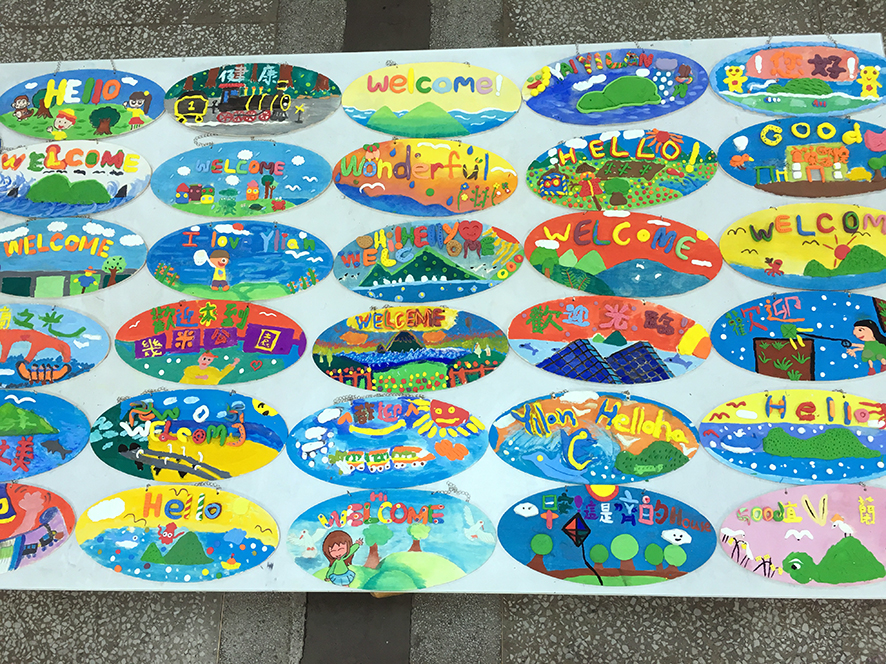 HEllO
健康
Welcome!
YAIYILAN
您好!
WELCOME
WELCOME
Wonderful
HELLO!
GOOd
WELCOME
I lov Yilan
Hi!Hello
WELCOME
WELCOME
WELCOM
之光
歡迎來到
幾米公園
WELCOME
歡迎光臨!
歡迎
美
WOW
WELCOME
Yilan Helloha
Hello
Hello
Hi
WELCOME
早安!這是宵的House
GOOD 蘭